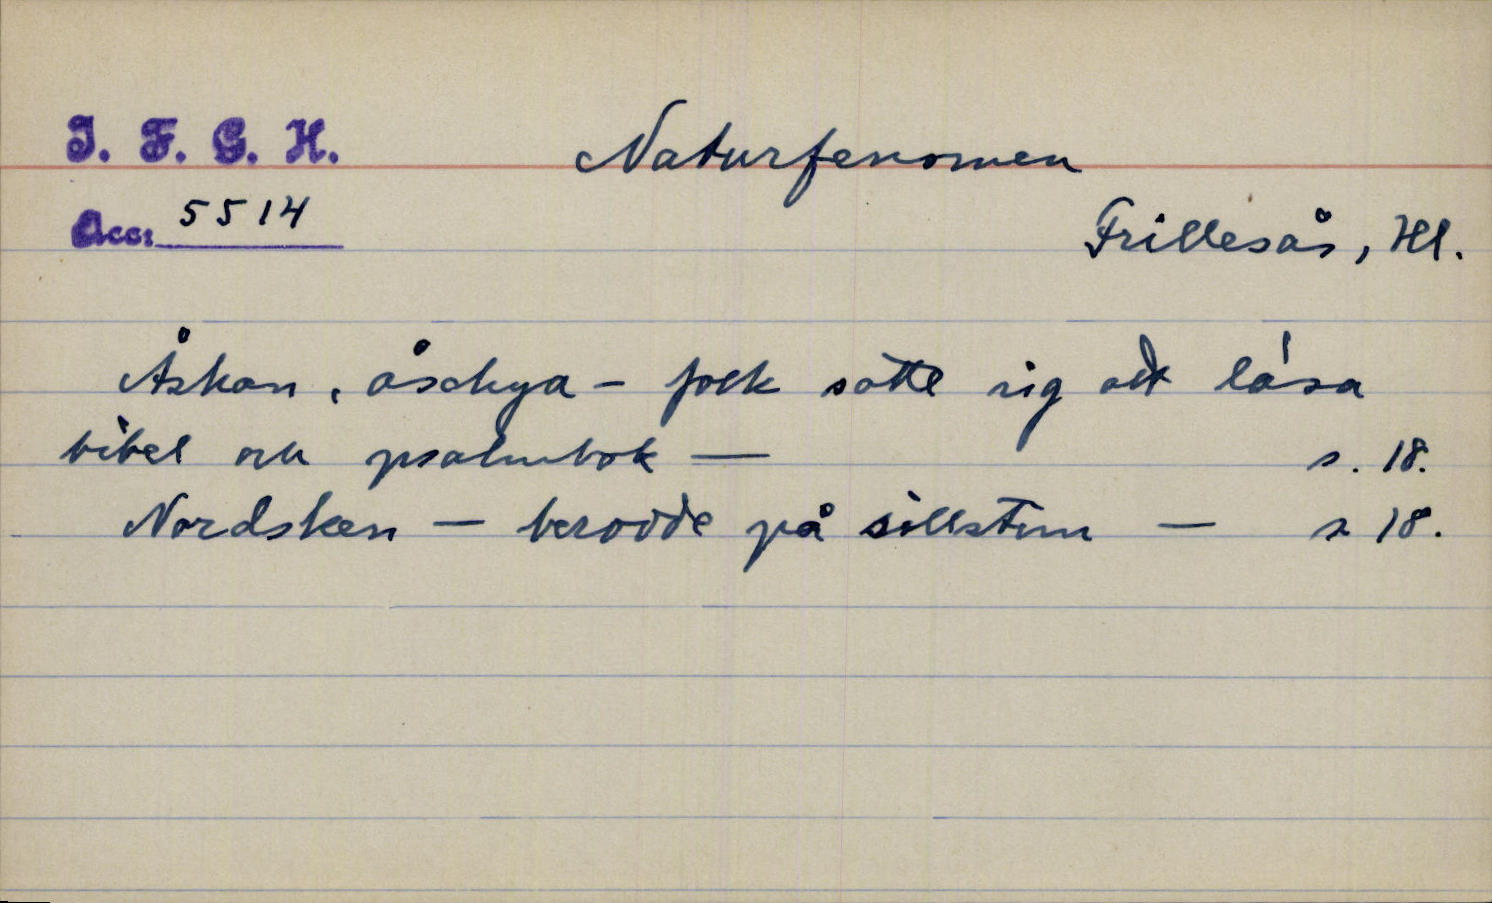 I. F. G. H.
Naturfenomen
Acc: 5514
Frillesås, Hl.
Åskan, åsckya - folk satte sig att läsa
bibel och psalmbok — s. 18.
Nordsken — berodde på sillstim — s 18.